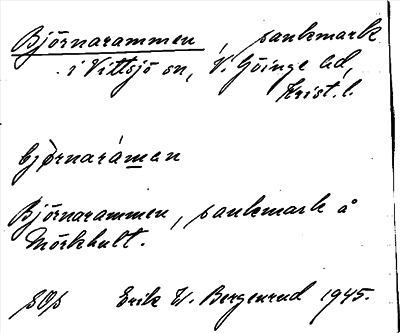 Björnarammen, sankmark
i Vittsjö sn, V. Göinge hd,
Krist. l.
bjørnaràmen
Björnarammen, sankmark å
Mörkhult.
Erik W. Bergenrud 1945.